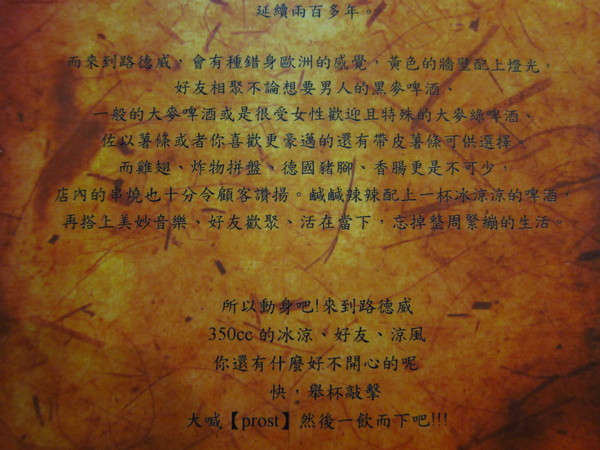 延續兩百多年。
而來到路德威，會有種錯身歐洲的感覺，黃色的牆壁配上燈光，
好友相聚不論想要男人的黑麥啤酒、
一般的大麥啤酒或是很受女性歡迎且特殊的大麥綠啤酒、
佐以薯條或者你喜歡更豪邁的還有帶皮薯條可供選擇。
而雞翅、炸物拼盤、德國豬腳、香腸更是不可少，
店內的串燒也十分令顧客讚揚。鹹鹹辣辣配上一杯冰涼涼的啤酒，
再搭上美妙音樂、好友歡聚、活在當下，忘掉整周緊繃的生活。
所以動身吧!來到路德威
350cc 的冰涼、好友、涼風
你還有什麼好不開心的呢
快，舉杯敲擊
大喊【prost】然後一飲而下吧!!!